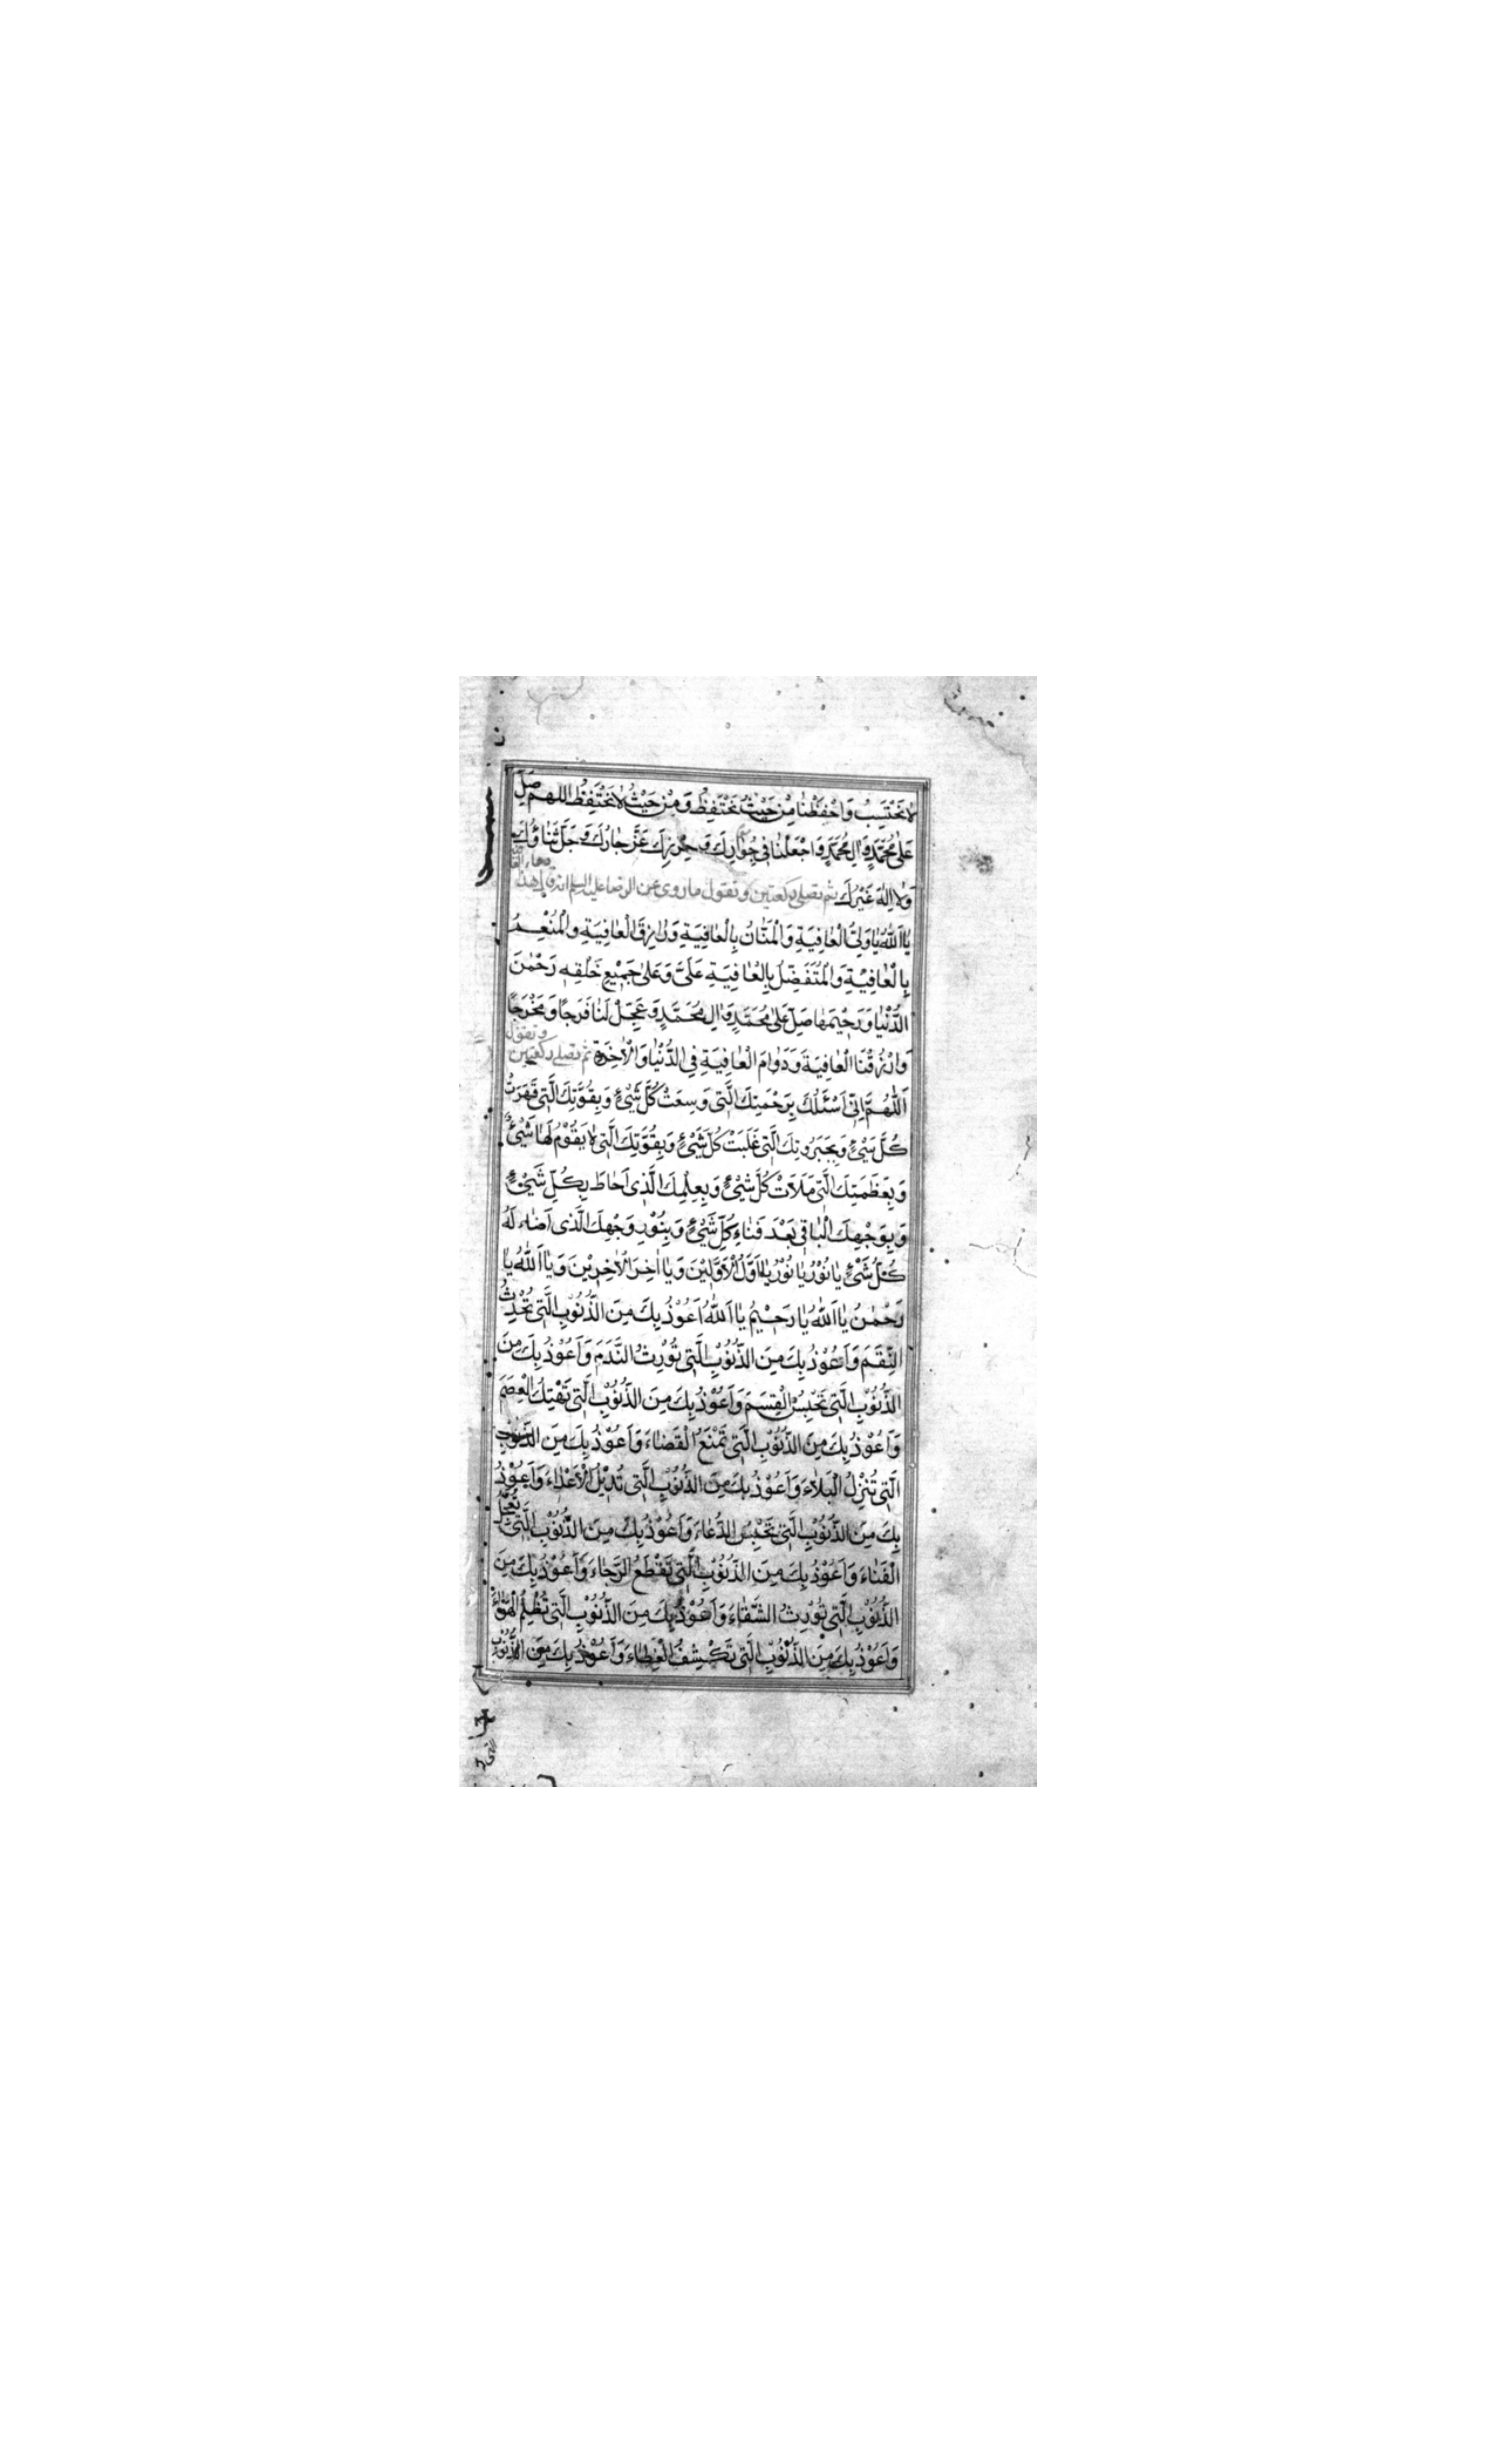 لا نَحْتَسِبُ وَاحْفَظْنَا مِنْ حَيْثُ نَحْتَفِظُ وَمِنْ حَيْثُ لَا نَحْتَفِظُ اللهم صَلِّ
عَلَىٰ مُحَمَّدٍ وَاٰلِ مُحَمَّدٍ وَاجْعَلْنَا فِي جِوَارِكَ وَحِرْزِكَ عَزَّ جَارُكَ وَجَلَّ ثَنَاؤُكَ
وَلَا اِلٰهَ غَيْرُكَ ثم تصلی رکعتین وتقول ماروی عن الرضا علیه السلم
يَا اَللّٰهُ يَا وَلِيَّ الْعَافِيَةِ وَالْمَنَّانُ بِالْعَافِيَةِ وَرَازِقَ الْعَافِيَةِ وَالْمُنْعِمُ
بِالْعَافِيَةِ وَالْمُتَفَضِّلُ بِالْعَافِيَةِ عَلَيَّ وَعَلىٰ جَمِيْعِ خَلْقِهِ رَحْمٰنَ
الدُّنْيَا وَرَحِيْمَهَا صَلِّ عَلىٰ مُحَمَّدٍ وَاٰلِ مُحَمَّدٍ وَعَجِّلْ لَنَا فَرَجًا وَمَخْرَجًا
وَارْزُقْنَا الْعَافِيَةَ وَدَوَامَ الْعَافِيَةِ فِي الدُّنْيَا وَالْاٰخِرَةِ ثم تصلی رکعتین وتقول
اَللّٰهُمَّ اِنِّي اَسْئَلُكَ بِرَحْمَتِكَ الَّتِي وَسِعَتْ كُلَّ شَيْءٍ وَبِقُوَّتِكَ الَّتِي قَهَرَتْ
كُلَّ شَيْءٍ وَبِجَبَرُوتِكَ الَّتِي غَلَبَتْ كُلَّ شَيْءٍ وَبِقُوَّتِكَ الَّتِي لَا يَقُوْمُ لَهَا شَيْءٌ
وَبِعَظَمَتِكَ الَّتِي مَلَاَتْ كُلَّ شَيْءٍ وَبِعِلْمِكَ الَّذِي اَحَاطَ بِكُلِّ شَيْءٍ
وَبِوَجْهِكَ الْبَاقِي بَعْدَ فَنَاءِ كُلِّ شَيْءٍ وَبِنُوْرِ وَجْهِكَ الَّذِي اَضَاءَ لَهُ
كُلُّ شَيْءٍ يَا نُوْرُ يَا نُوْرُ يَا اَوَّلَ الْاَوَّلِيْنَ وَيَا اٰخِرَ الْاٰخِرِيْنَ وَيَا اَللّٰهُ يَا
رَحْمٰنُ يَا اَللّٰهُ يَا رَحِيْمُ يَا اَللّٰهُ اَعُوْذُ بِكَ مِنَ الذُّنُوْبِ الَّتِي تُحْدِثُ
النِّقَمَ وَاَعُوْذُ بِكَ مِنَ الذُّنُوْبِ الَّتِي تُوْرِثُ النَّدَمَ وَاَعُوْذُ بِكَ مِنَ
الذُّنُوْبِ الَّتِي تَحْبِسُ الْقِسَمَ وَاَعُوْذُ بِكَ مِنَ الذُّنُوْبِ الَّتِي تَهْتِكُ الْعِصَمَ
وَاَعُوْذُ بِكَ مِنَ الذُّنُوْبِ الَّتِي تَمْنَعُ الْقَضَاءَ وَاَعُوْذُ بِكَ مِنَ الذُّنُوْبِ
الَّتِي تُنْزِلُ الْبَلَاءَ وَاَعُوْذُ بِكَ مِنَ الذُّنُوْبِ الَّتِي تُدِيْلُ الْاَعْدَاءَ وَاَعُوْذُ
بِكَ مِنَ الذُّنُوْبِ الَّتِي تَحْبِسُ الدُّعَاءَ وَاَعُوْذُ بِكَ مِنَ الذُّنُوْبِ الَّتِي تُعَجِّلُ
الْفَنَاءَ وَاَعُوْذُ بِكَ مِنَ الذُّنُوْبِ الَّتِي تَقْطَعُ الرَّجَاءَ وَاَعُوْذُ بِكَ مِنَ
الذُّنُوْبِ الَّتِي تُوْرِثُ الشَّقَاءَ وَاَعُوْذُ بِكَ مِنَ الذُّنُوْبِ الَّتِي تُظْلِمُ الْهَوَاءَ
وَاَعُوْذُ بِكَ مِنَ الذُّنُوْبِ الَّتِي تَكْشِفُ الْغِطَاءَ وَاَعُوْذُ بِكَ مِنَ الذُّنُوْبِ